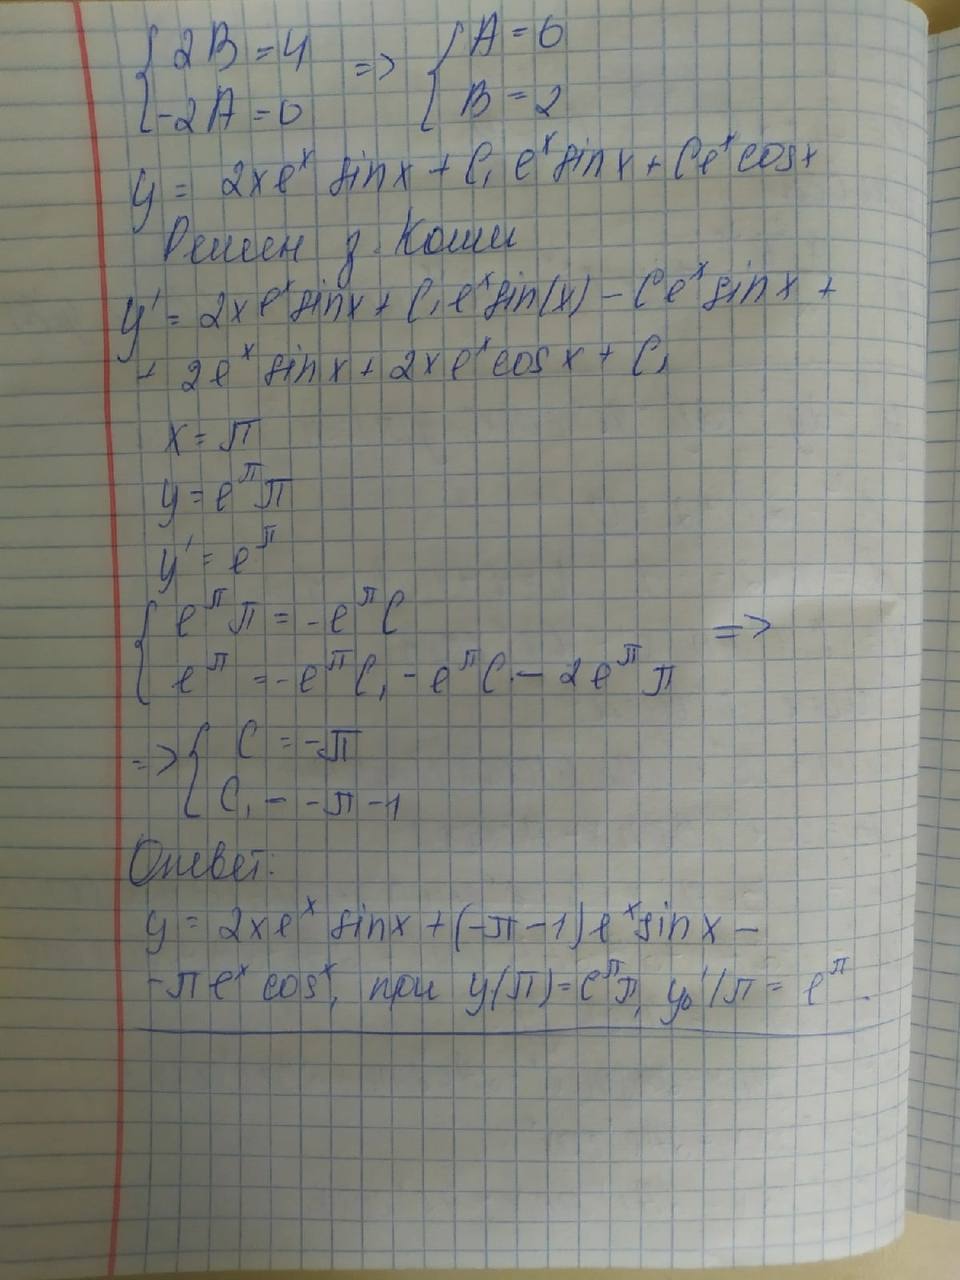 { 2B = 4 => { A = 0
{ -2A = 0 { B = 2
y = 2xe^x sinx + C₁ e^x sinx + Ce^x cosx
Решен з. Коши
y' = 2xe^x sinx + C₁e^x sin(x) - Ce^x sinx +
+ 2e^x sinx + 2xe^x cosx + C₁
x = π
y = e^π π
y' = e^π
{ e^π π = -e^π C =>
{ e^π = -e^π C₁ - e^π C - 2e^π π
=> { C = -π
{ C₁ = -π -1
Ответ:
y = 2xe^x sinx + (-π -1)e^x sinx -
-π e^x cos^x, при y(π) = e^π π, y₀'(π = e^π.